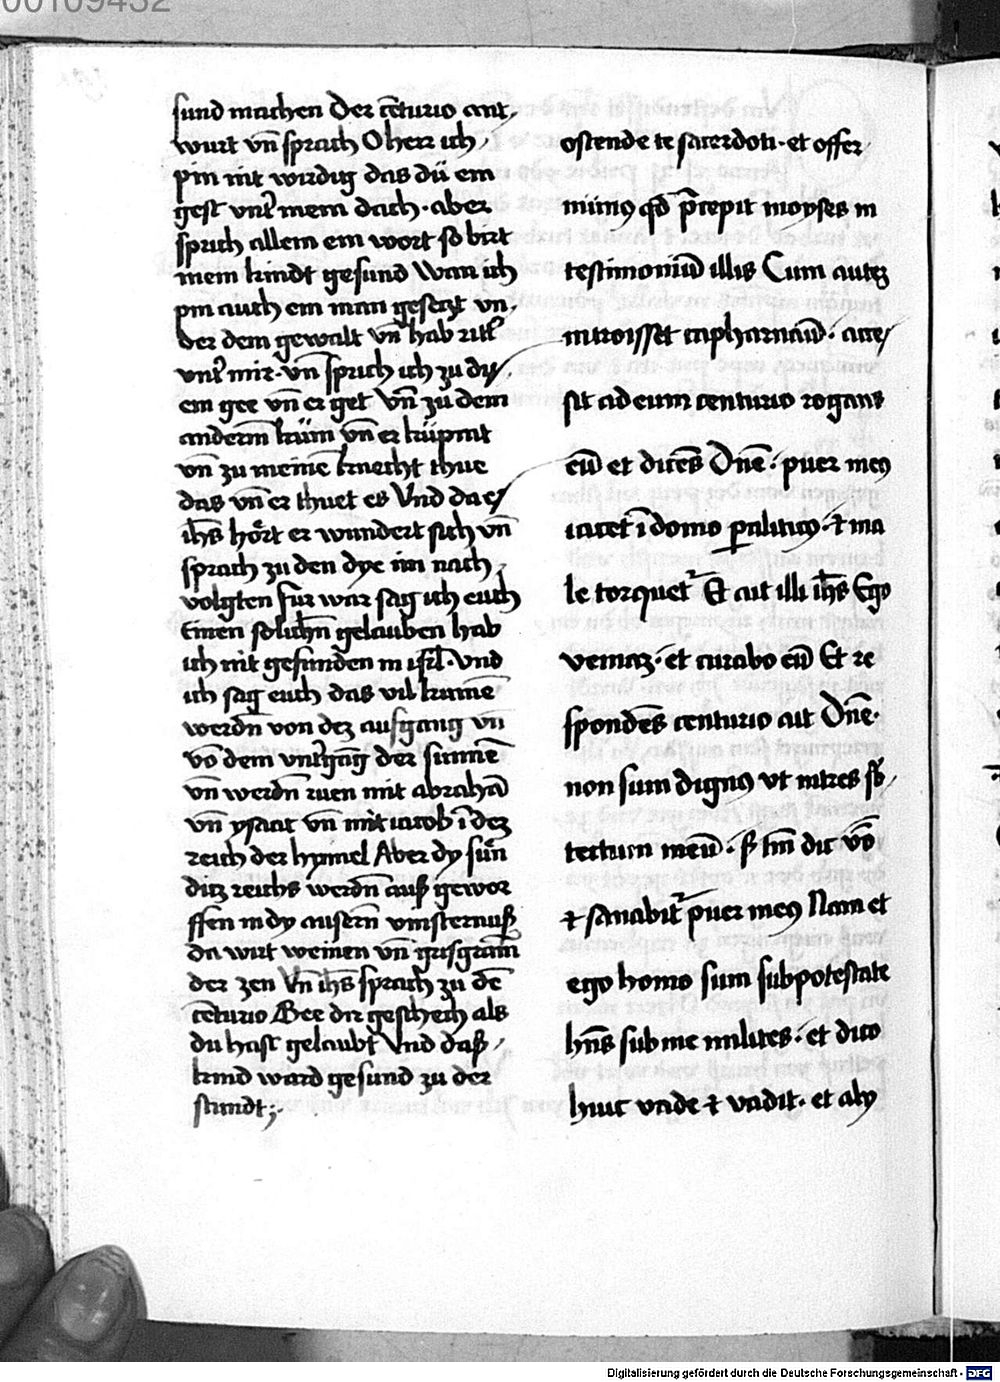 00109432
sund machen Der cēturio ant,
wurt vn̄ sprach O herr ich,
pin nit wirdig das dü em
gest vnt᷑ mem dach · aber
sprich allem em wort so birt
mem kindt gesund Wan ich
pm auch em man gesetzt vn,
der dem gewalt vn̄ hab ritt᷑
vnt᷑ mir · vn̄ sprich ich zu dy,
em gee vn̄ er get vn̄ zu dem
anderm kům vn̄ er kůpmt
vn̄ zu meinē knecht thue
das vn̄ er thuet es Vnd da es
ih̄s hört er wundert sich vn̄
sprach zu den dye im nach,
volgten für war sag ich euch
Einen solichn̄ gelauben hab
ich nit gefunden in isrl̄ · vnd
ich sag euch das vil kumē
werdn̄ von dez aufgang vn̄
vō dem vnt᷑gāg der sunnē
vn̄ werdn̄ ruen mit abrahā
vn̄ ysaac vn̄ mit iacob ī dez
reich der hymel Aber dy sün̄
ditz reichs werdn̄ auß gewor
ffen in dy ausern̄ vinsternuß
da wirt weinen vn̄ grisgram̄
der zen Vn̄ ih̄s sprach zu dē
cēturio Gee dir geschech als
du hast gelaubt Vnd daß,
kind ward gesund zu der
stundt;
ostende te sacerdoti · et offer
munꝰ qd̄ p̄cepit moyses in
testimoniū illis Cum autez
introisset capharnaū · acces
sit ad eum centurio rogans
eū et dicēs Dn̄e · puer meꝰ
iacet ī domo ꝑaliticꝰ · ⁊ ma
le torquet᷑ Et ait illi ih̄s Ego
veniaz · et curabo eū Et re
spondēs centurio ait Dn̄e ·
non sum dignꝰ vt intres sb̄,
tectum meū · sꝫ tm̄ dic v̄bo
⁊ sanabit᷑ puer meꝰ Nam et
ego homo sum sub potestate
hn̄s sub me milites · et dico
huic vade ⁊ vadit · et aly
Digitalisierung gefördert durch die Deutsche Forschungsgemeinschaft - DFG